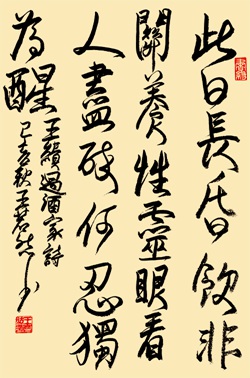 此日長昏飲非
關養性靈眼看
人盡醉何忍獨
為醒
王績過酒家詩
己亥秋王